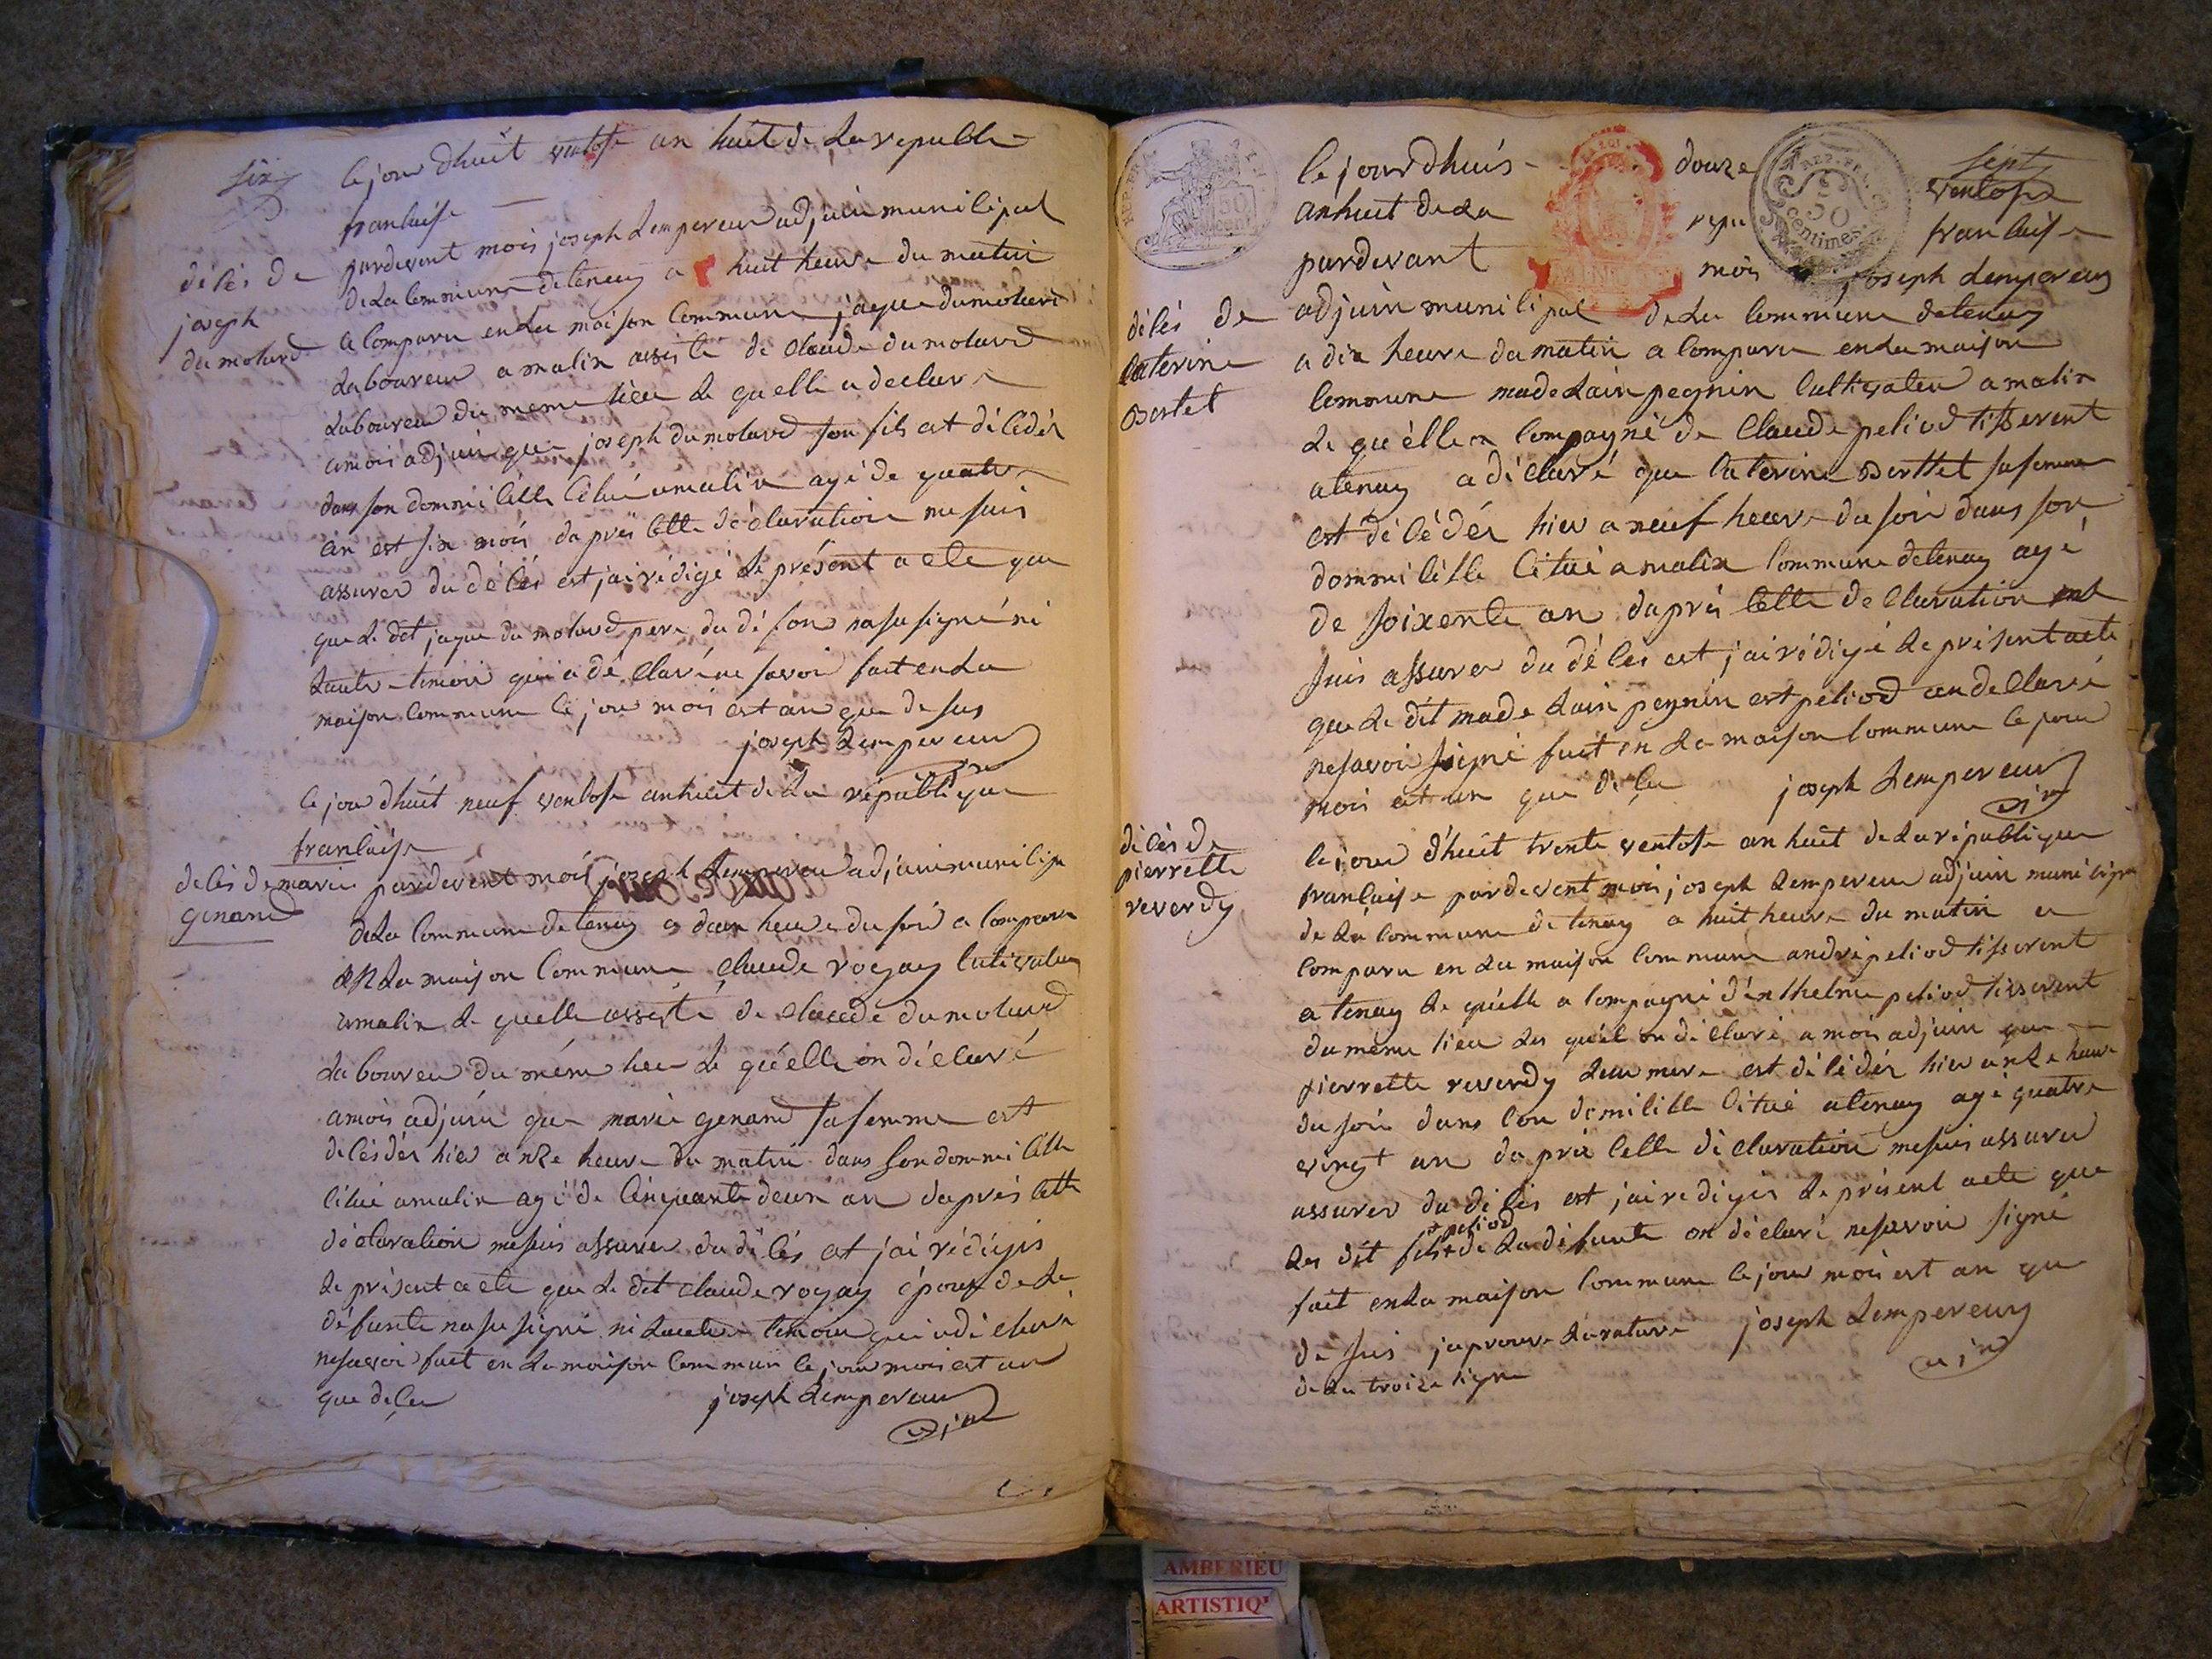 six
le jour dhuit ventose an huit de la republi
franlaise
pardevent mois joseph Lempereur adjuin munilipal
de la lommune de tenay a huit heure du matin
délés de
joseph
dumolard
a lomparu en la maison lommune jaque dumolard
laboureur a malix assisté de claude dumolard
laboureur du meme lieu le quelle a declare
a mois adjuin que joseph dumolard son fils est délédér
dans son dommiliélle litué a malix agé de quatre
an est six mois daprés lelle déclaration me suis
assurer du délés est jai rédigé le présent acte que
que le dit jaque dumolard pere du défon na su signé ni
lautre temoin qui a déclaré ne savoi fait en la
maison lommune le jour mois est an que de sus
joseph Lempereur
ajn
le jour dhuit neuf ventose an huit de la république
franlaise
délés de marie
genand
pardevent mois joseph Lempereur adjuin munilipa
de la lommune de tenay a deux heure du soir a lomparu
en la maison lommune claude rogay lultivateur
a malix le quelle assisté de claude dumolard
laboureur du méme lieu le quélle on déclaré
a mois adjuin que marie genand sa femme est
délédér hier a nze heure du matin dans son dommilélle
litué a malix agé de linquante deux an daprés lette
déclaration me suis assurer du délés et jai rédigés
le présent acte que le dit claude rogay époux de la
défunte na su signé ni lautre temoin qui a déclaré
ne savoi fait en la maison lommun le jour mois est an
que de çu
joseph Lempereur
ajn
REP. FRA.
50
cent.
REP. FRA.
50
Centimes
sept
le jour dhuis douze ventose
an huit de la repu franlaise
pardevant mois joseph Lempereur
délés de
laterine
Bertet
adjuin munilipal de la lommune de tenay
a dix heure du matin a lomparu en la maison
lommune madelain pegnin lultivateur a malix
le quélle a lompagné de Claude peliod tisserent
a tenay a déclaré que laterine Berttet sa femme
est délédér hier a neuf heure du soir dans son
dommilélle litué a malix lommune de tenay agé
de soixente an daprés lelle declaration me
suis assurer du délés est jai rédigé le présent acte
que le dit madelain pegnin est peliod on declaré
ne savoir signé fait en la maison lommune le jour
mois et an que de çu joseph Lempereur
ajn
délés de
pierrette
reverdy
le jour d'huit trente ventose an huit de la république
franlaise pardevent mois joseph Lempereur adjuin munilipa
de la lommune de tenay a huit heure du matin a
lomparu en la maison lommune andré peliod tisserent
a tenay le quélle a lompagné d'enthelme peliod tisserent
du méme lieu les quél on déclaré a mois adjuin que
pierrette reverdy leur mere est délédér hier a nze heure
du soir dans son domilille litué a tenay agé quatre
vingt an daprés lelle déclaration me suis assurer
assurer du délés est jai rédigés le présent acte que
les dit fils + peliod de la défunte on déclaré ne savoir signé
fait en la maison lommune le jour mois est an que
de sus japrouve la rature joseph Lempereur
de la troize ligne
ajn
AMBERIEU
ARTISTIQ'